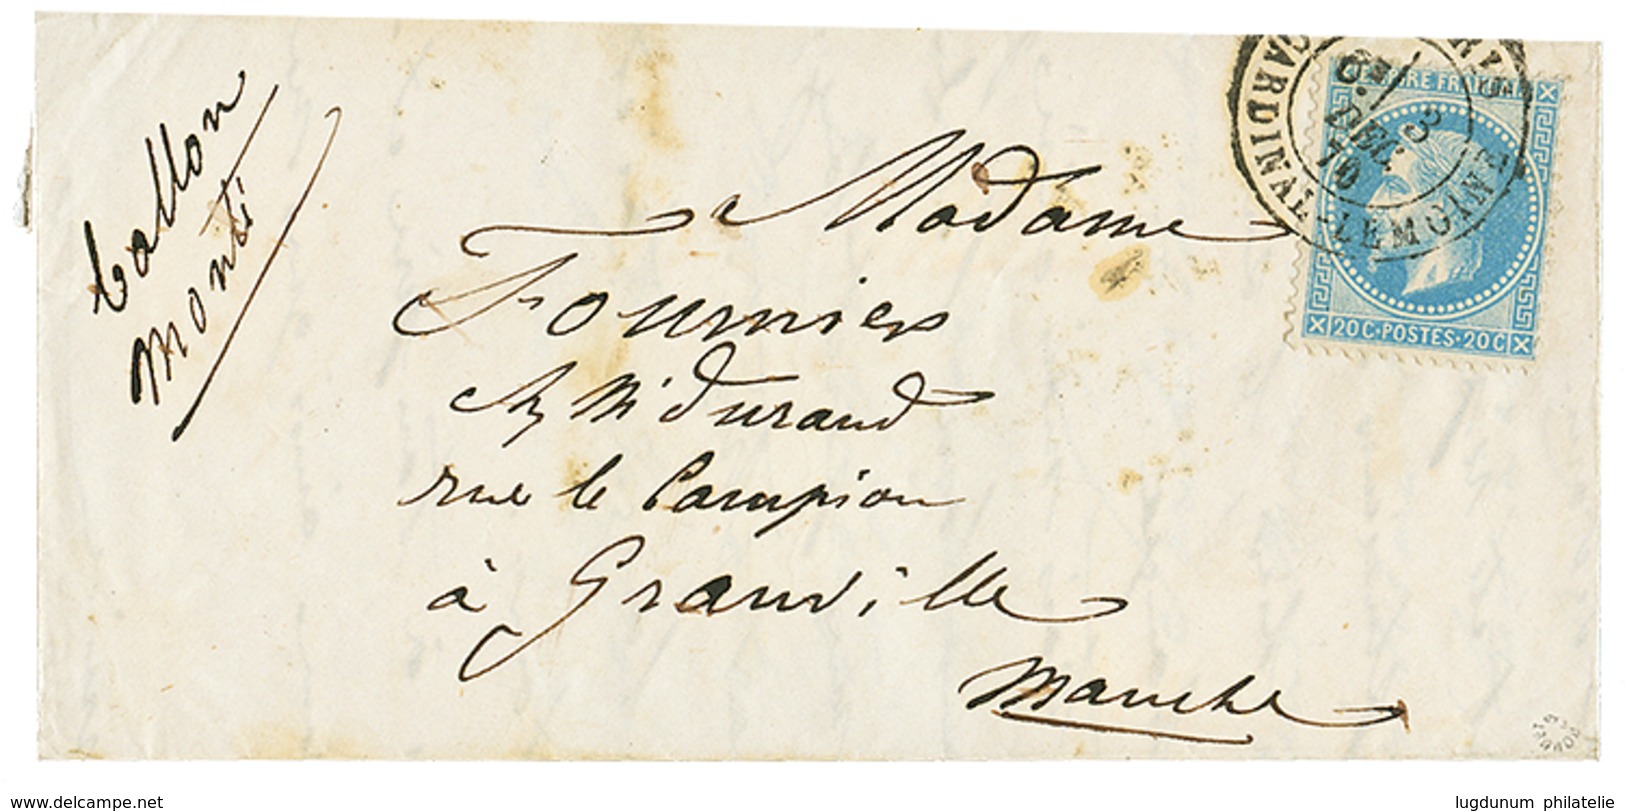 ballon
monté
CARDINAL-LEMOINE
6E/ 3
DEC.
70
EMPIRE FRANÇAIS
20 C · POSTES · 20 C
Madame
Fournier
chez Mr durand
rue le Campion
à Granville
Manche
delcampe.net
lugdunum philatelie